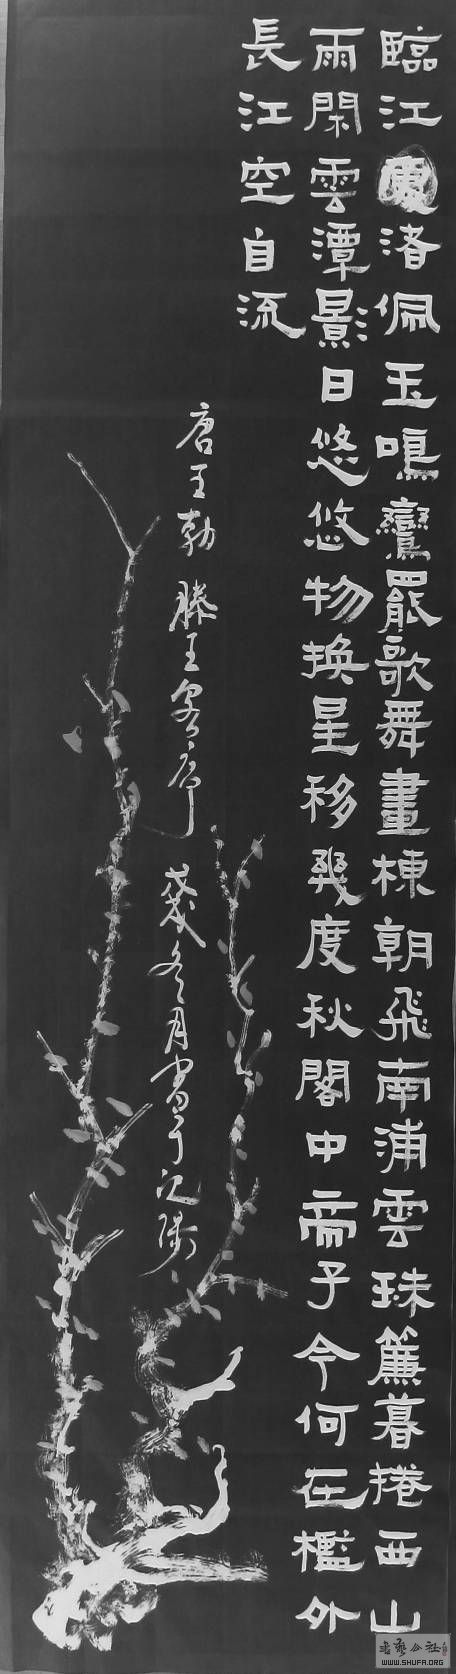 臨江渚佩玉鳴鸞罷歌舞畫棟朝飛南浦雲珠簾暮捲西山
雨閑雲潭影日悠悠物換星移幾度秋閣中帝子今何在檻外
長江空自流
唐王勃 滕王閣序 歲冬月書于沈陽
書藝公社
WWW.SHUFA.ORG